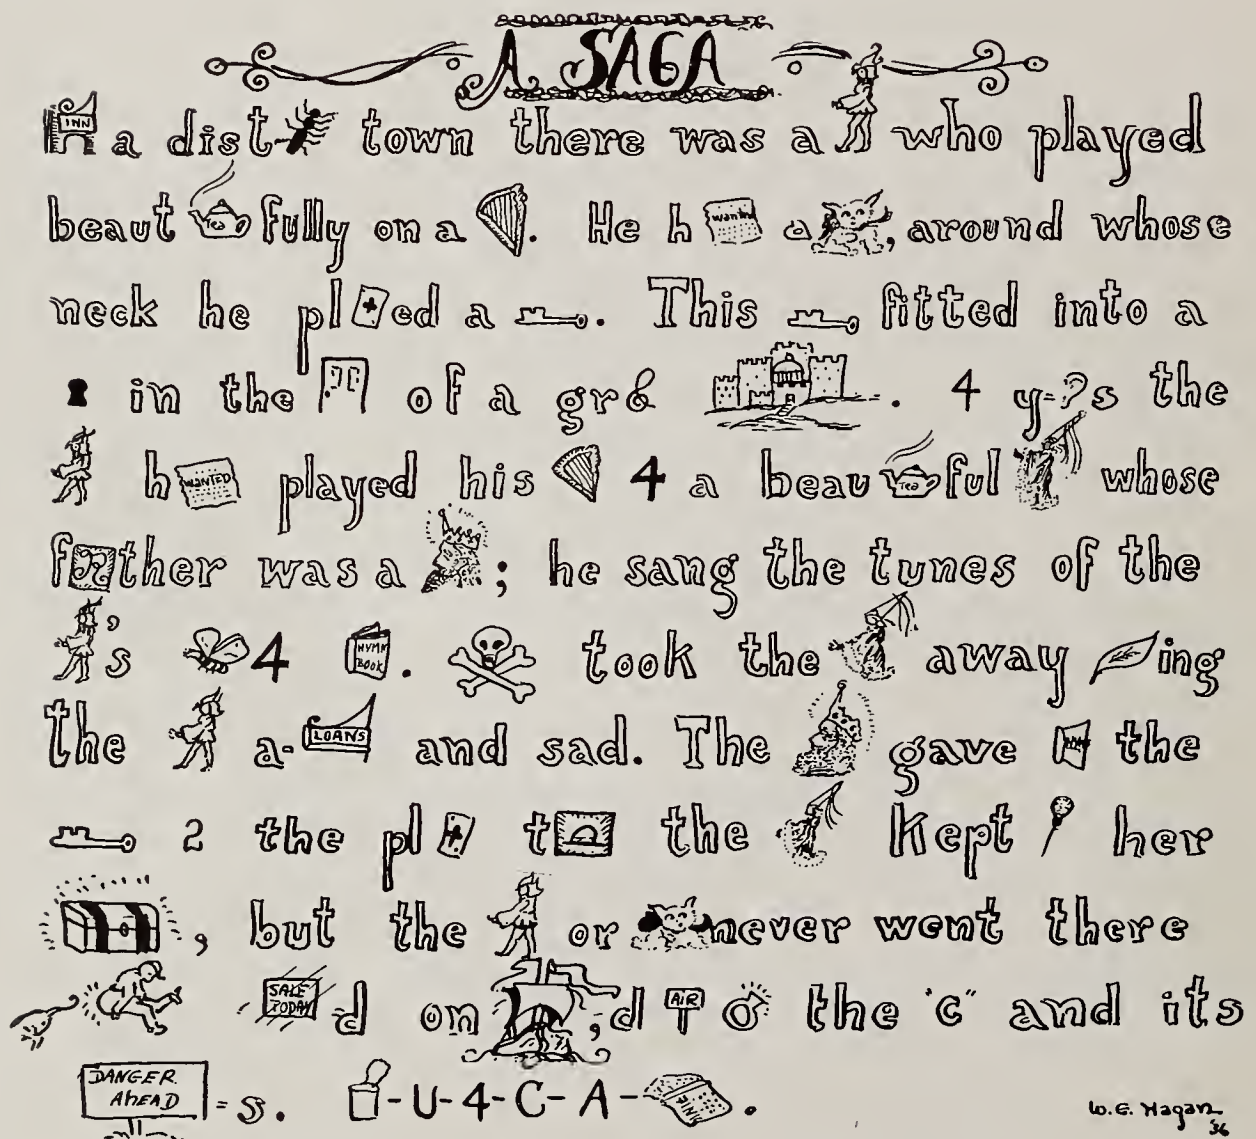 A SAGA
INN a dist town there was a who played
beaut Tea fully on a . He h wanted a , around whose
neck he pl ed a . This fitted into a
in the of a gr . 4 y- s the
h WANTED played his 4 a beau Tea ful whose
f ther was a ; he sang the tunes of the
's 4 HYMN BOOK . took the away ing
the a- LOANS and sad. The gave the
2 the pl t the kept her
, but the or never went there
SALE TODAY d on , d AIR the "C" and its
DANGER AHEAD = s. - U - 4 - C - A - .
W.E. Hagan '36